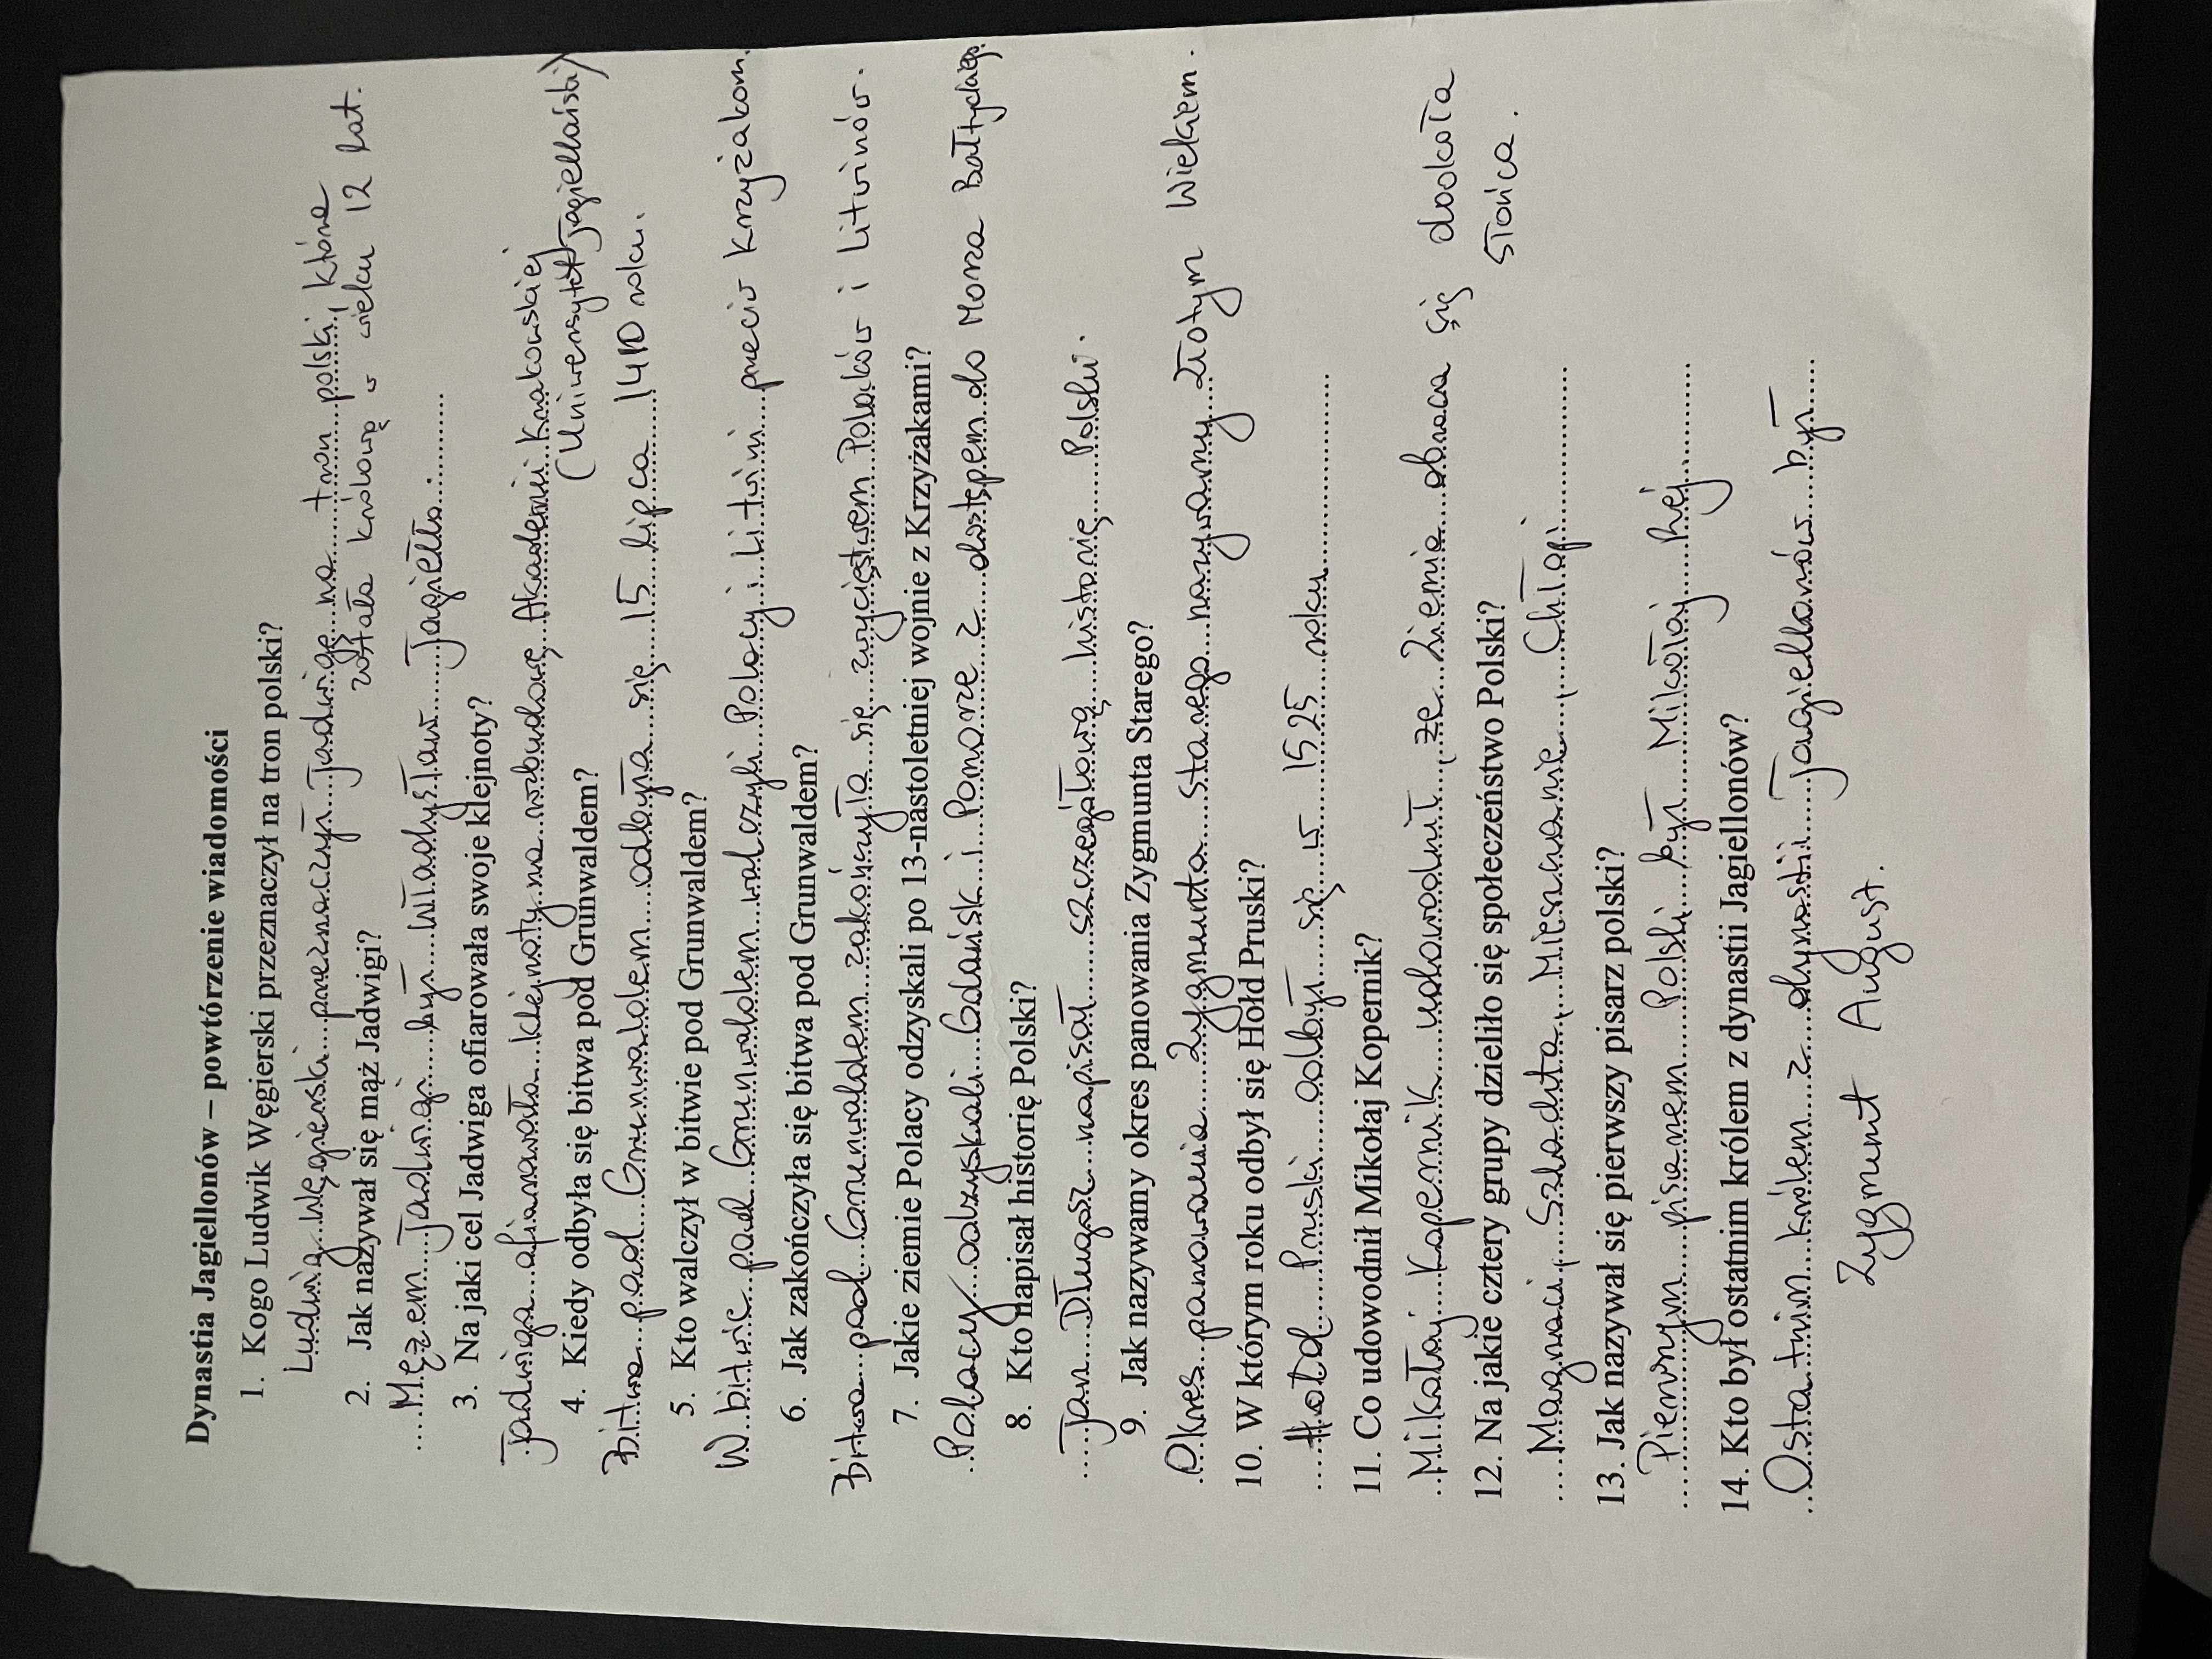 Dynastia Jagiellonów – powtórzenie wiadomości
1. Kogo Ludwik Węgierski przeznaczył na tron polski?
Ludwig Węgierski przeznaczył Jadwigę na tron polski, która
została królową w wieku 12 lat.
2. Jak nazywał się mąż Jadwigi?
Mężem Jadwigi był Władysław Jagiełło.
3. Na jaki cel Jadwiga ofiarowała swoje klejnoty?
Jadwiga ofiarowała klejnoty na rozbudowę Akademii Krakowskiej
(Uniwersytet Jagielloński)
4. Kiedy odbyła się bitwa pod Grunwaldem?
Bitwa pod Grunwaldem odbyła się 15 lipca 1410 roku.
5. Kto walczył w bitwie pod Grunwaldem?
W bitwie pod Grunwaldem walczyli Polacy i Litwini przeciw Krzyżakom.
6. Jak zakończyła się bitwa pod Grunwaldem?
Bitwa pod Grunwaldem zakończyła się zwycięstwem Polaków i Litwinów.
7. Jakie ziemie Polacy odzyskali po 13-nastoletniej wojnie z Krzyżakami?
Polacy odzyskali Gdańsk i Pomorze z dostępem do Morza Bałtyckiego.
8. Kto napisał historię Polski?
Jan Długosz napisał szczegółową historię Polski.
9. Jak nazywamy okres panowania Zygmunta Starego?
Okres panowania Zygmunta Starego nazywamy Złotym Wiekiem.
10. W którym roku odbył się Hołd Pruski?
Hołd Pruski odbył się w 1525 roku
11. Co udowodnił Mikołaj Kopernik?
Mikołaj Kopernik udowodnił, że Ziemia obraca się dookoła
Słońca.
12. Na jakie cztery grupy dzieliło się społeczeństwo Polski?
Magnaci, Szlachta, Mieszczanie, Chłopi
13. Jak nazywał się pierwszy pisarz polski?
Pierwszym pisarzem Polski był Mikołaj Rej
14. Kto był ostatnim królem z dynastii Jagiellonów?
Ostatnim królem z dynastii Jagiellonów był
Zygmunt August.